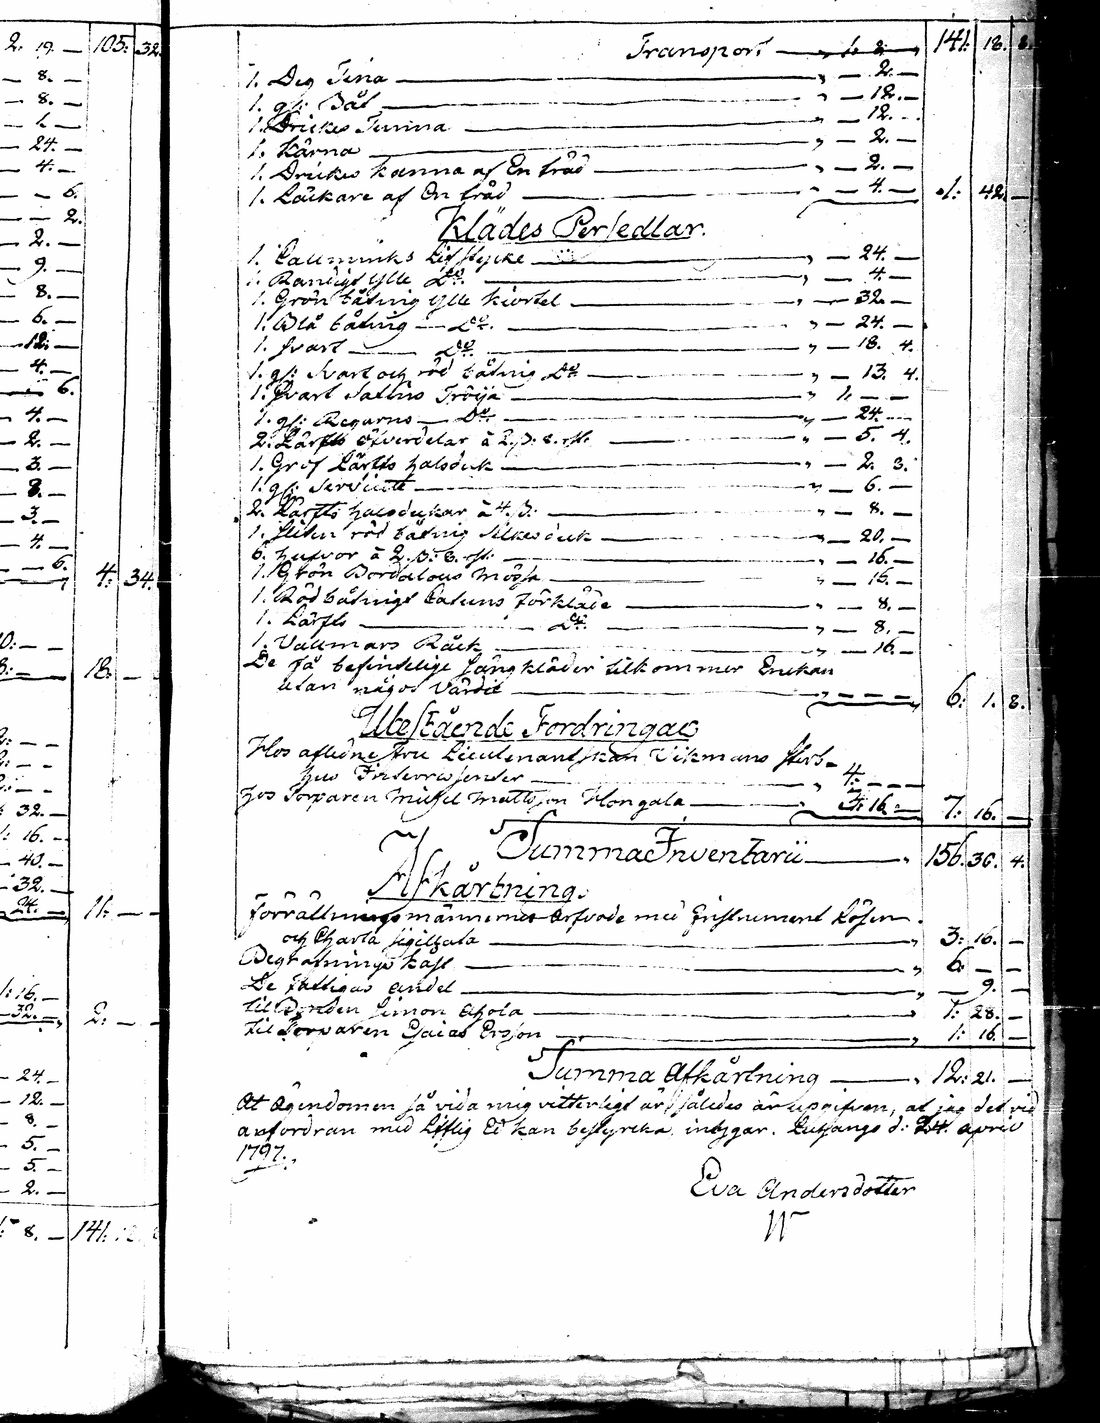 2. 19. — 105: 32.
— 8. —
— 8. —
— 1. —
— 24. —
— 4. —
— — 6.
— — 2.
— 2. —
— 9. —
— 8. —
— 6. —
— 12. —
— 4. —
— — 6.
— 4. —
— 2. —
— 3. —
— 8. —
— 3. —
— 4. —
— — 6. 4: 34.
18. — —
32. —
16. —
40. —
32. —
24. — 11: — —
1: 16. —
32. — 2: — —
— 24. —
— 12. —
8. —
— 5. —
— 5. —
— 2. —
8. — 141:
Transport — 1. 8. 141: 18. 8.
1. Deg Tina — „ — 2. —
1. gl: Båt — „ — 12. —
1. Drickes Tunna — „ — 12. —
1. Kärna — „ — 2. —
1. Drickes kanna af En träd — „ — 2. —
1. Läckare af En träd — „ — 4. — 1: 42. —
Klädes Persedlar.
1. Callminks Lifstycke — „ — 24. —
1. Randigt ylle Do — „ — 4. —
1. Grön tåtnig ylle kiortel — „ — 32. —
1. Blå tåtnig — Do. — „ — 24. —
1. svart — Do — „ — 18. 4.
1. gl: svart och röd tåtnig Do — „ — 13. 4.
1. Svart Satins Tröija — „ 1. — —
1. gl: Regarns — Do — „ — 24. —
2. Lärfts öfverdelar à 2. ß. 8. rst. — „ — 5. 4.
1. Grof Lärfts halsduk — „ — 2. 3.
1. gl: Serviette — „ — 6. —
2. Lärfts halsdukar à 4. ß: — „ — 8. —
1. Sliten röd tåtnig silkesduk — „ — 20. —
6. hufvor à 2. ß: 8. rst. — „ — 16. —
1. Grön Bordalous Mössa — „ — 16. —
1. Röd tåtnigt Catuns Förkläde — „ — 8. —
1. Lärfts — Do. — „ — 8. —
1. Vallmars Råck — „ — 16. —
De få befintelige Sängkläder tilkommer Enckan
utan något värde — „ — — — 6: 1. 8.
Utestående Fordringar
Hos aflidne fru Lieutenantskan Vikmans sterb-
hus — „ 4: — —
hos Torparen Michel Mattsson Hongala — „ 3: 16: — 7: 16. —
Summa Inventarii — „ 156. 36. 4.
Afkårtning.
Förrättningsmännernes Arfvode med Instrument Lösen
och Charta Sigillata — „ 3: 16. —
Begrafnings kåst — „ 6: — —
De fattigas andel — „ — 9. —
til Bonden Simon Ahola — „ 1: 28. —
til Torparen Esaias Ersson — „ 1: 16. —
Summa Afkårtning — „ 12: 21. —
At Ägendomen så vida mig vitterligt är, således är upgifven, at jag det vid
anfordran med Liflig Ed kan bestyrcka intygar. d: 24. april
1797.
Eva Andersdotter